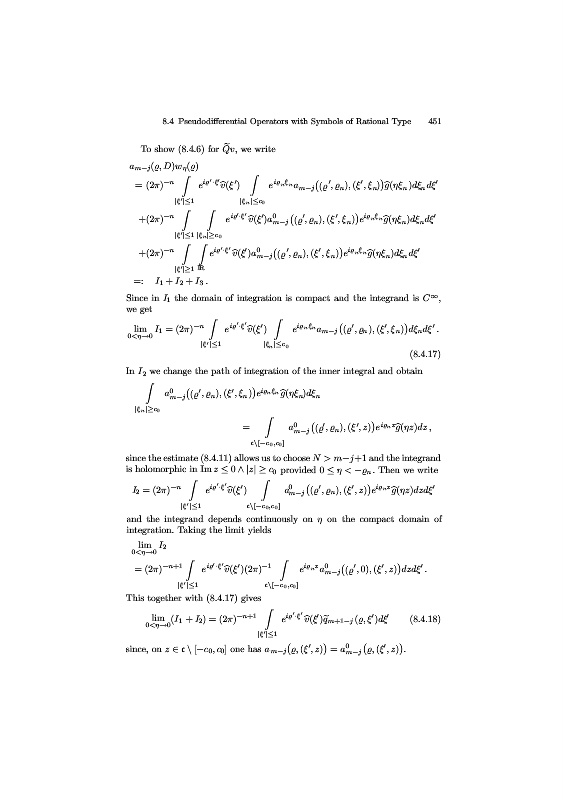 8.4 Pseudodifferential Operators with Symbols of Rational Type 451
To show (8.4.6) for Q̃v, we write
a_{m−j}(ϱ, D)w_η(ϱ)
= (2π)^{−n} ∫_{|ξ′|≤1} e^{iϱ′·ξ′} v̂(ξ′) ∫_{|ξ_n|≤c_0} e^{iϱ_nξ_n} a_{m−j}((ϱ′, ϱ_n), (ξ′, ξ_n)) ĝ(ηξ_n)dξ_n dξ′
+(2π)^{−n} ∫_{|ξ′|≤1} ∫_{|ξ_n|≥c_0} e^{iϱ′·ξ′} v̂(ξ′) a^0_{m−j}((ϱ′, ϱ_n), (ξ′, ξ_n)) e^{iϱ_nξ_n} ĝ(ηξ_n)dξ_n dξ′
+(2π)^{−n} ∫_{|ξ′|≥1} ∫_ℝ e^{iϱ′·ξ′} v̂(ξ′) a^0_{m−j}((ϱ′, ϱ_n), (ξ′, ξ_n)) e^{iϱ_nξ_n} ĝ(ηξ_n)dξ_n dξ′
=: I_1 + I_2 + I_3 .
Since in I_1 the domain of integration is compact and the integrand is C^∞,
we get
lim_{0<η→0} I_1 = (2π)^{−n} ∫_{|ξ′|≤1} e^{iϱ′·ξ′} v̂(ξ′) ∫_{|ξ_n|≤c_0} e^{iϱ_nξ_n} a_{m−j}((ϱ′, ϱ_n), (ξ′, ξ_n))dξ_n dξ′ .
(8.4.17)
In I_2 we change the path of integration of the inner integral and obtain
∫_{|ξ_n|≥c_0} a^0_{m−j}((ϱ′, ϱ_n), (ξ′, ξ_n)) e^{iϱ_nξ_n} ĝ(ηξ_n)dξ_n
= ∫_{𝔠\[−c_0,c_0]} a^0_{m−j}((ϱ′, ϱ_n), (ξ′, z)) e^{iϱ_nz} ĝ(ηz)dz ,
since the estimate (8.4.11) allows us to choose N > m−j+1 and the integrand
is holomorphic in Im z ≤ 0 ∧ |z| ≥ c_0 provided 0 ≤ η < −ϱ_n. Then we write
I_2 = (2π)^{−n} ∫_{|ξ′|≤1} e^{iϱ′·ξ′} v̂(ξ′) ∫_{𝔠\[−c_0,c_0]} a^0_{m−j}((ϱ′, ϱ_n), (ξ′, z)) e^{iϱ_nz} ĝ(ηz)dzdξ′
and the integrand depends continuously on η on the compact domain of
integration. Taking the limit yields
lim_{0<η→0} I_2
= (2π)^{−n+1} ∫_{|ξ′|≤1} e^{iϱ′·ξ′} v̂(ξ′)(2π)^{−1} ∫_{𝔠\[−c_0,c_0]} e^{iϱ_nz} a^0_{m−j}((ϱ′, 0), (ξ′, z))dzdξ′ .
This together with (8.4.17) gives
lim_{0<η→0} (I_1 + I_2) = (2π)^{−n+1} ∫_{|ξ′|≤1} e^{iϱ′·ξ′} v̂(ξ′) q̃_{m+1−j}(ϱ, ξ′)dξ′ (8.4.18)
since, on z ∈ 𝔠 \ [−c_0, c_0] one has a_{m−j}(ϱ, (ξ′, z)) = a^0_{m−j}(ϱ, (ξ′, z)).